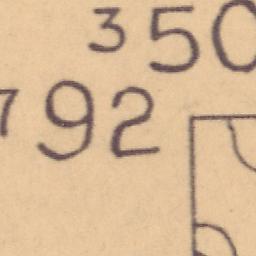 350
792